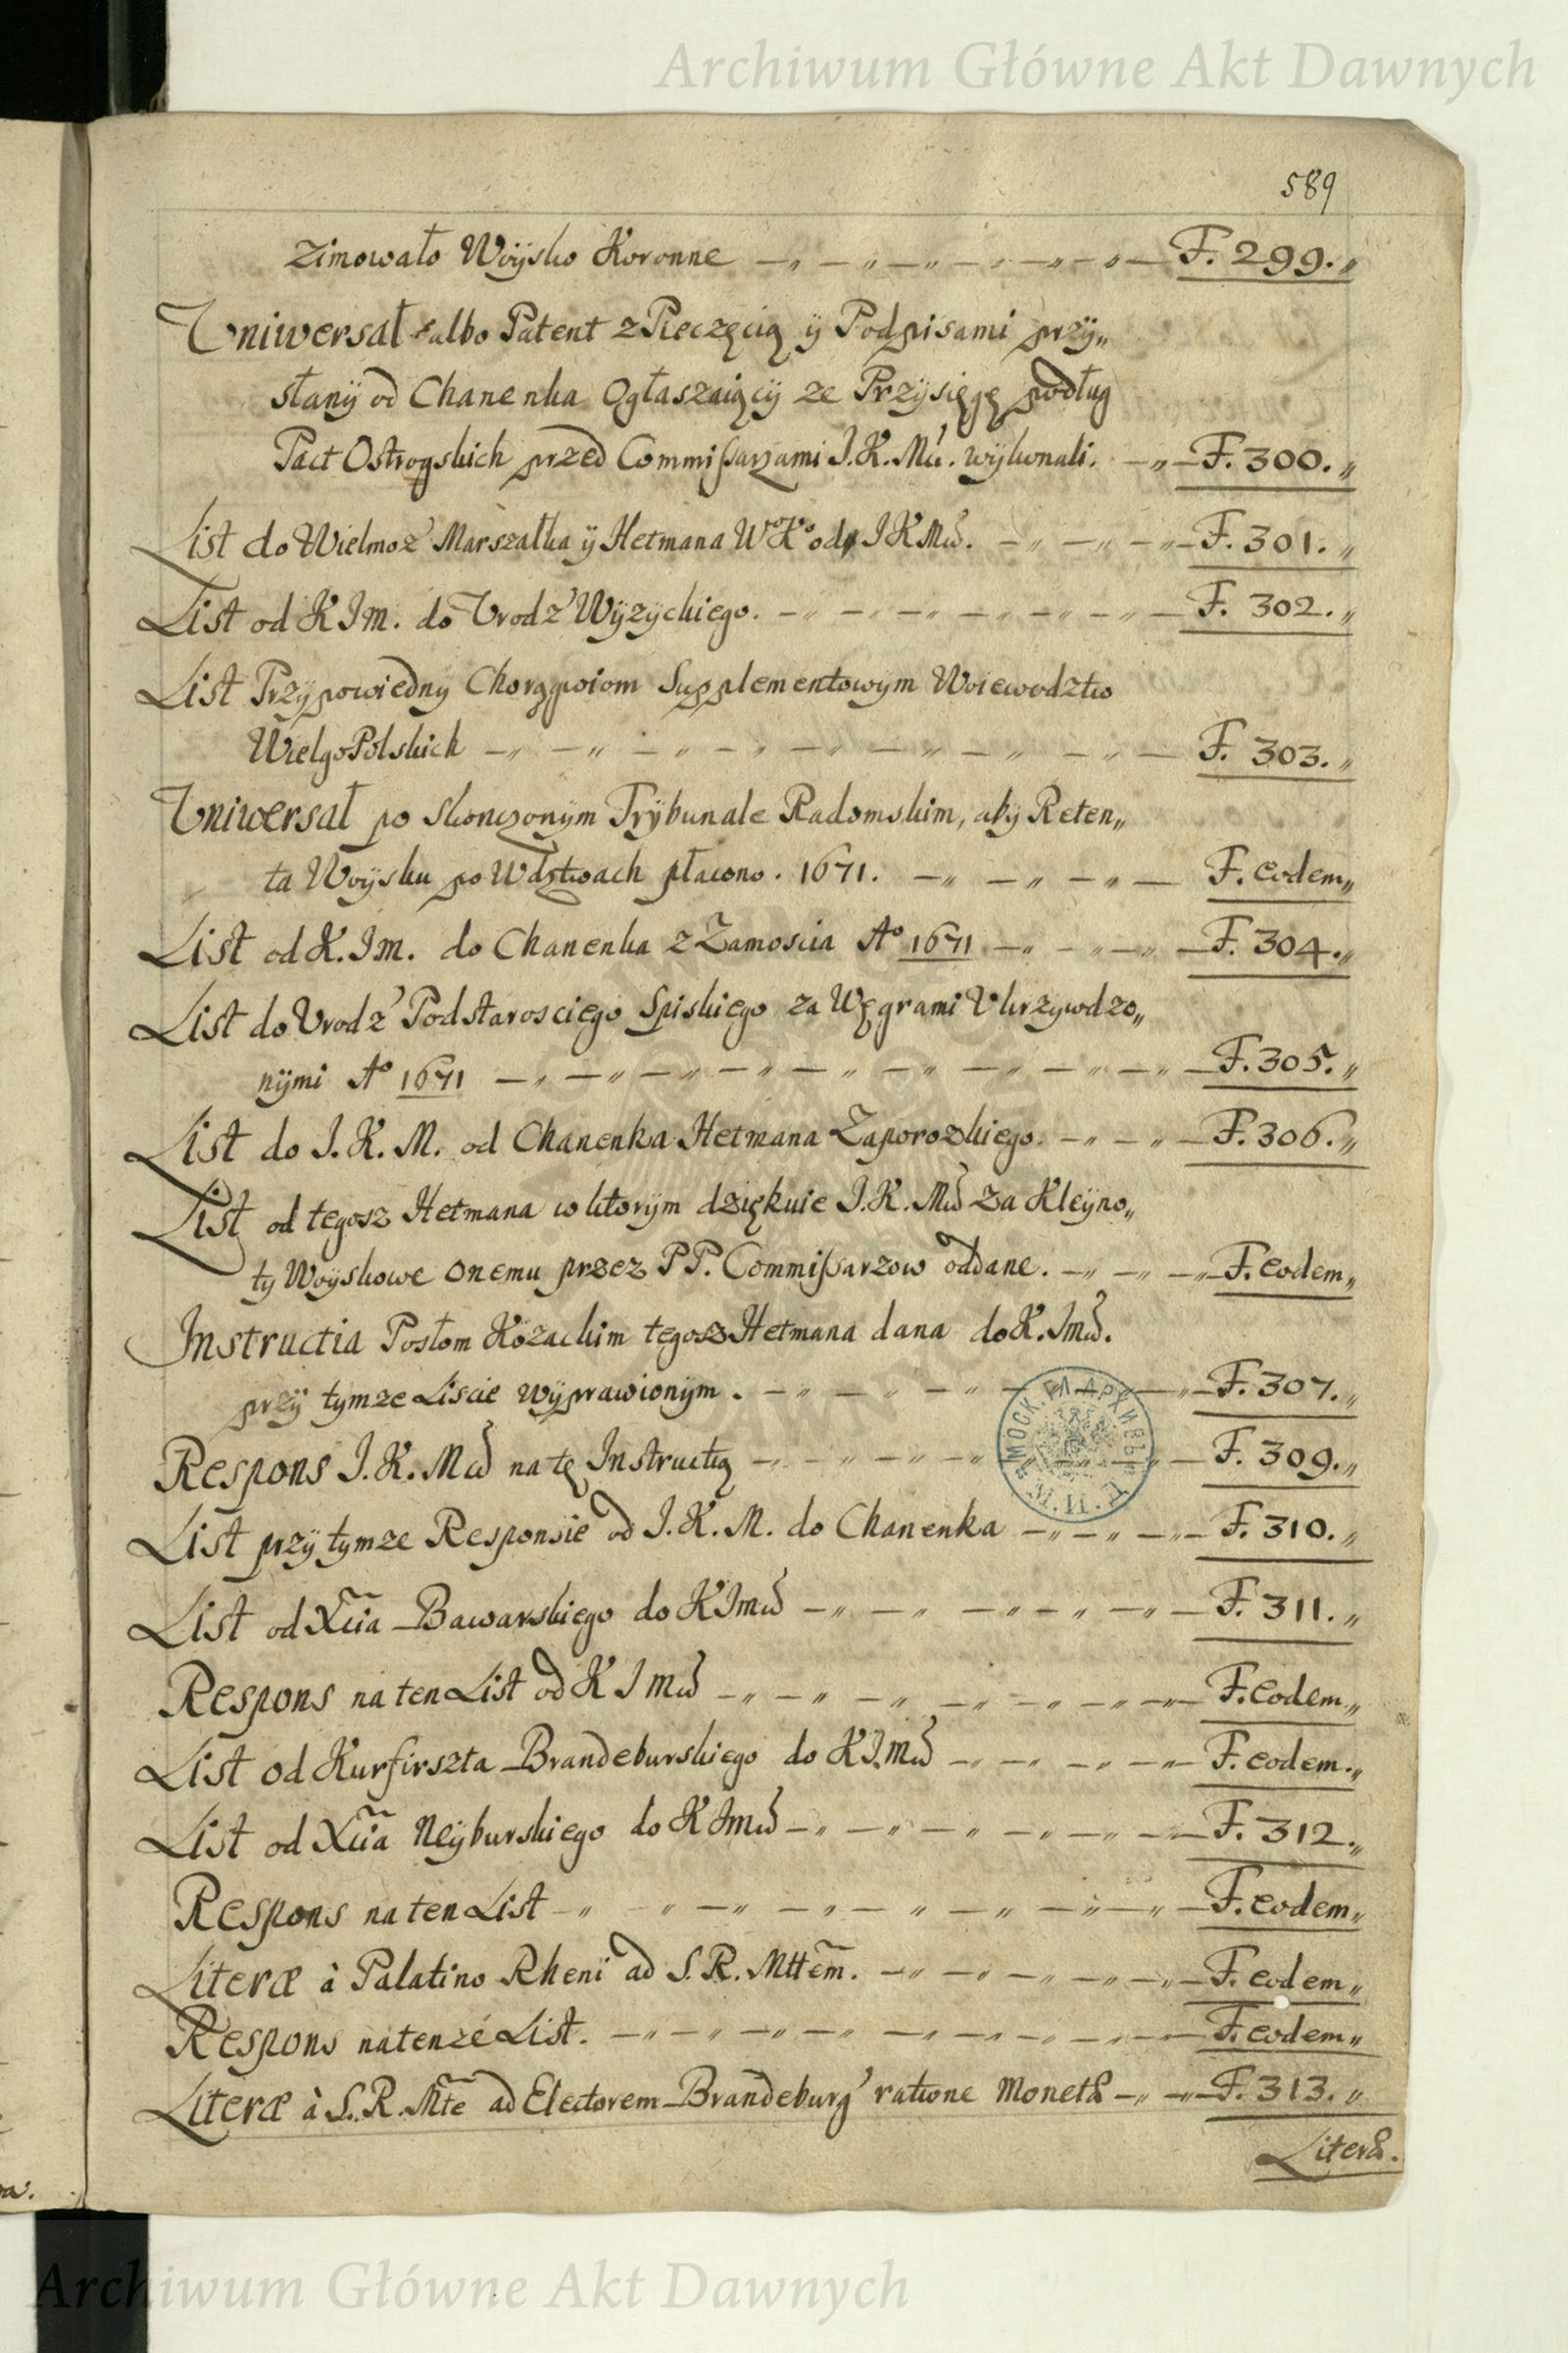 Archiwum Główne Akt Dawnych
589
zimowało Woÿsko Koronne — F. 299.
Uniwersał albo Patent z Pieczęcią ÿ Podpisami przÿ„
słanÿ od Chanenka Ogłaszaiącÿ ze Przysięgę podług
Pact Ostrogskich przed Commißarzami J. K. Mći. wÿkonali. — F. 300.
List do Wielmoż Marszałka ÿ Hetmana WoKo od JKMći. — F. 301.
List od KJm. do Vrodz Wÿzÿckiego. — F. 302.
List Przÿpowiednÿ Chorągwiom Supplementowÿm Woiewodztw
WielgoPolskich — F. 303.
Uniwersał po skonczonÿm Trÿbunale Radomskim, abÿ Reten„
ta Woÿsku po Wdztwach płacono. 1671. — F. eodem„
List od K. Jm. do Chanenka z Zamoscia Ao 1671 — F. 304.
List do Vrodz Podstarosciego Spiskiego za Węgrami Vkrzywdzo„
nÿmi Ao 1671 — F. 305.
List do J. K. M. od Chanenka Hetmana Zaporozkiego. — F. 306.
List od tegosz Hetmana w ktorÿm dziękuie J. K. Mći za Kleÿno„
ty Woÿskowe onemu przez PP. Commißarzow oddane. — F. eodem„
Instructia Posłom Kozackim tegosz Hetmana dana do K. Jmći.
przÿ tymze Liscie wyprawionÿm. — F. 307.
МОСК. ГЛ. АРХИВЪ
Respons J. K. Mći na tę Instructią — F. 309.
List przÿ tymze Responsie od J. K. M. do Chanenka — F. 310.
List od Xcia Bawarskiego do KJmći — F. 311.
Respons na ten List od KJmći — F. eodem„
List od Kurfirszta Brandeburskiego do KJ.Mći — F. eodem.
List od Xcia Neÿburskiego do KJmći — F. 312.
Respons na ten List — F. eodem„
Literæ à Palatino Rheni ad S. R. Mttem. — F. eodem„
Respons na tenże List. — F. eodem„
Literæ à S. R. Mte ad Electorem Brandeburg ratione Monetæ — F. 313.
Literæ.
Archiwum Główne Akt Dawnych